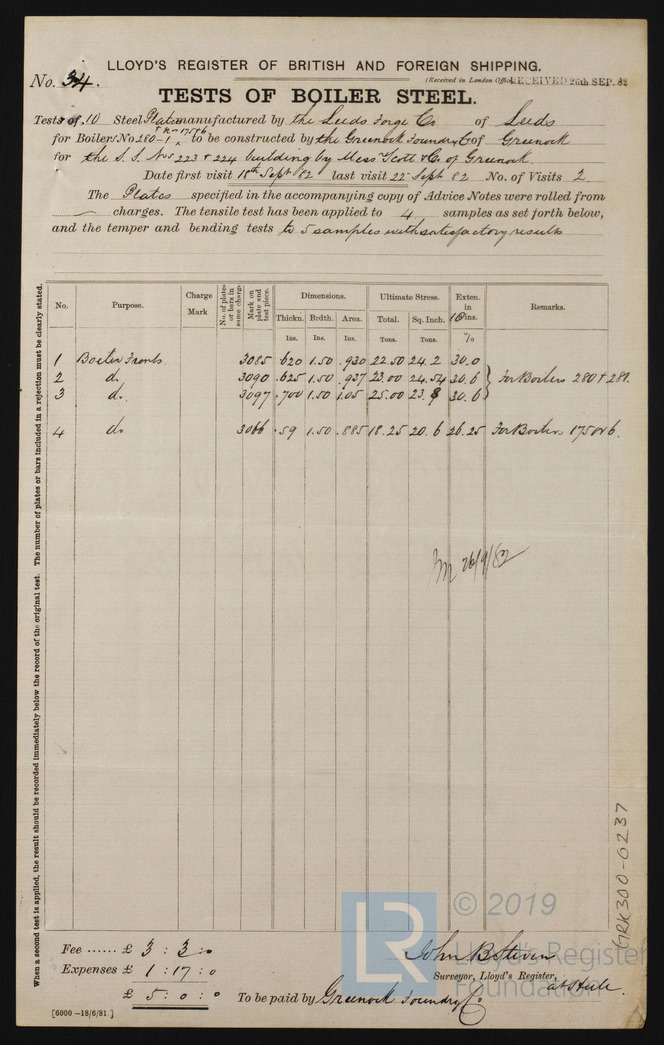 LLOYD'S REGISTER OF BRITISH AND FOREIGN SHIPPING.
No. 34.
(Received in London Office RECEIVED 26th SEP. 82
TESTS OF BOILER STEEL.
Tests of 10 Steel Plates manufactured by the Leeds Forge Co of Leeds
& No 175 & 6
for Boilers No 280-1, to be constructed by the Greenock Foundry Co of Greenock
for the S.S. Nos 223 & 224 building by Mess Scott & Co of Greenock.
Date first visit 18th Sept 82 last visit 22 Sept 82 No. of Visits 2.
The Plates specified in the accompanying copy of Advice Notes were rolled from
— charges. The tensile test has been applied to 4 samples as set forth below,
and the temper and bending tests to 5 samples with satisfactory results
No. Purpose. Charge Mark No. of plates or bars in same charge Mark on plate and test piece. Dimensions. Ultimate Stress. Exten. in 10 ins. Remarks.
Thickn. Brdth. Area. Total. Sq. Inch.
Ins. Ins. Ins. Tons. Tons. %
1 Boiler Fronts. 3085 .620 1.50 .930 22.50 24.2 30.0
2 do 3090 .625 1.50 .937 23.00 24.54 30.6 } For Boilers 280 & 281.
3 do. 3097 .700 1.50 1.05 25.00 23.8 30.6
4 do 3066 .59 1.50 .885 18.25 20.6 26.25 For Boilers 175 & 6.
26/9/82
When a second test is applied, the result should be recorded immediately below the record of the original test. The number of plates or bars included in a rejection must be clearly stated.
GRK300-0237
© 2019
LR
Lloyd's Register
Foundation
Fee ...... £ 3 : 3 : 0
Expenses £ 1 : 17 : 0
£ 5 : 0 : 0
John B Steven
Surveyor, Lloyd's Register,
To be paid by Greenock Foundry Co
[6000—18/6/81.]